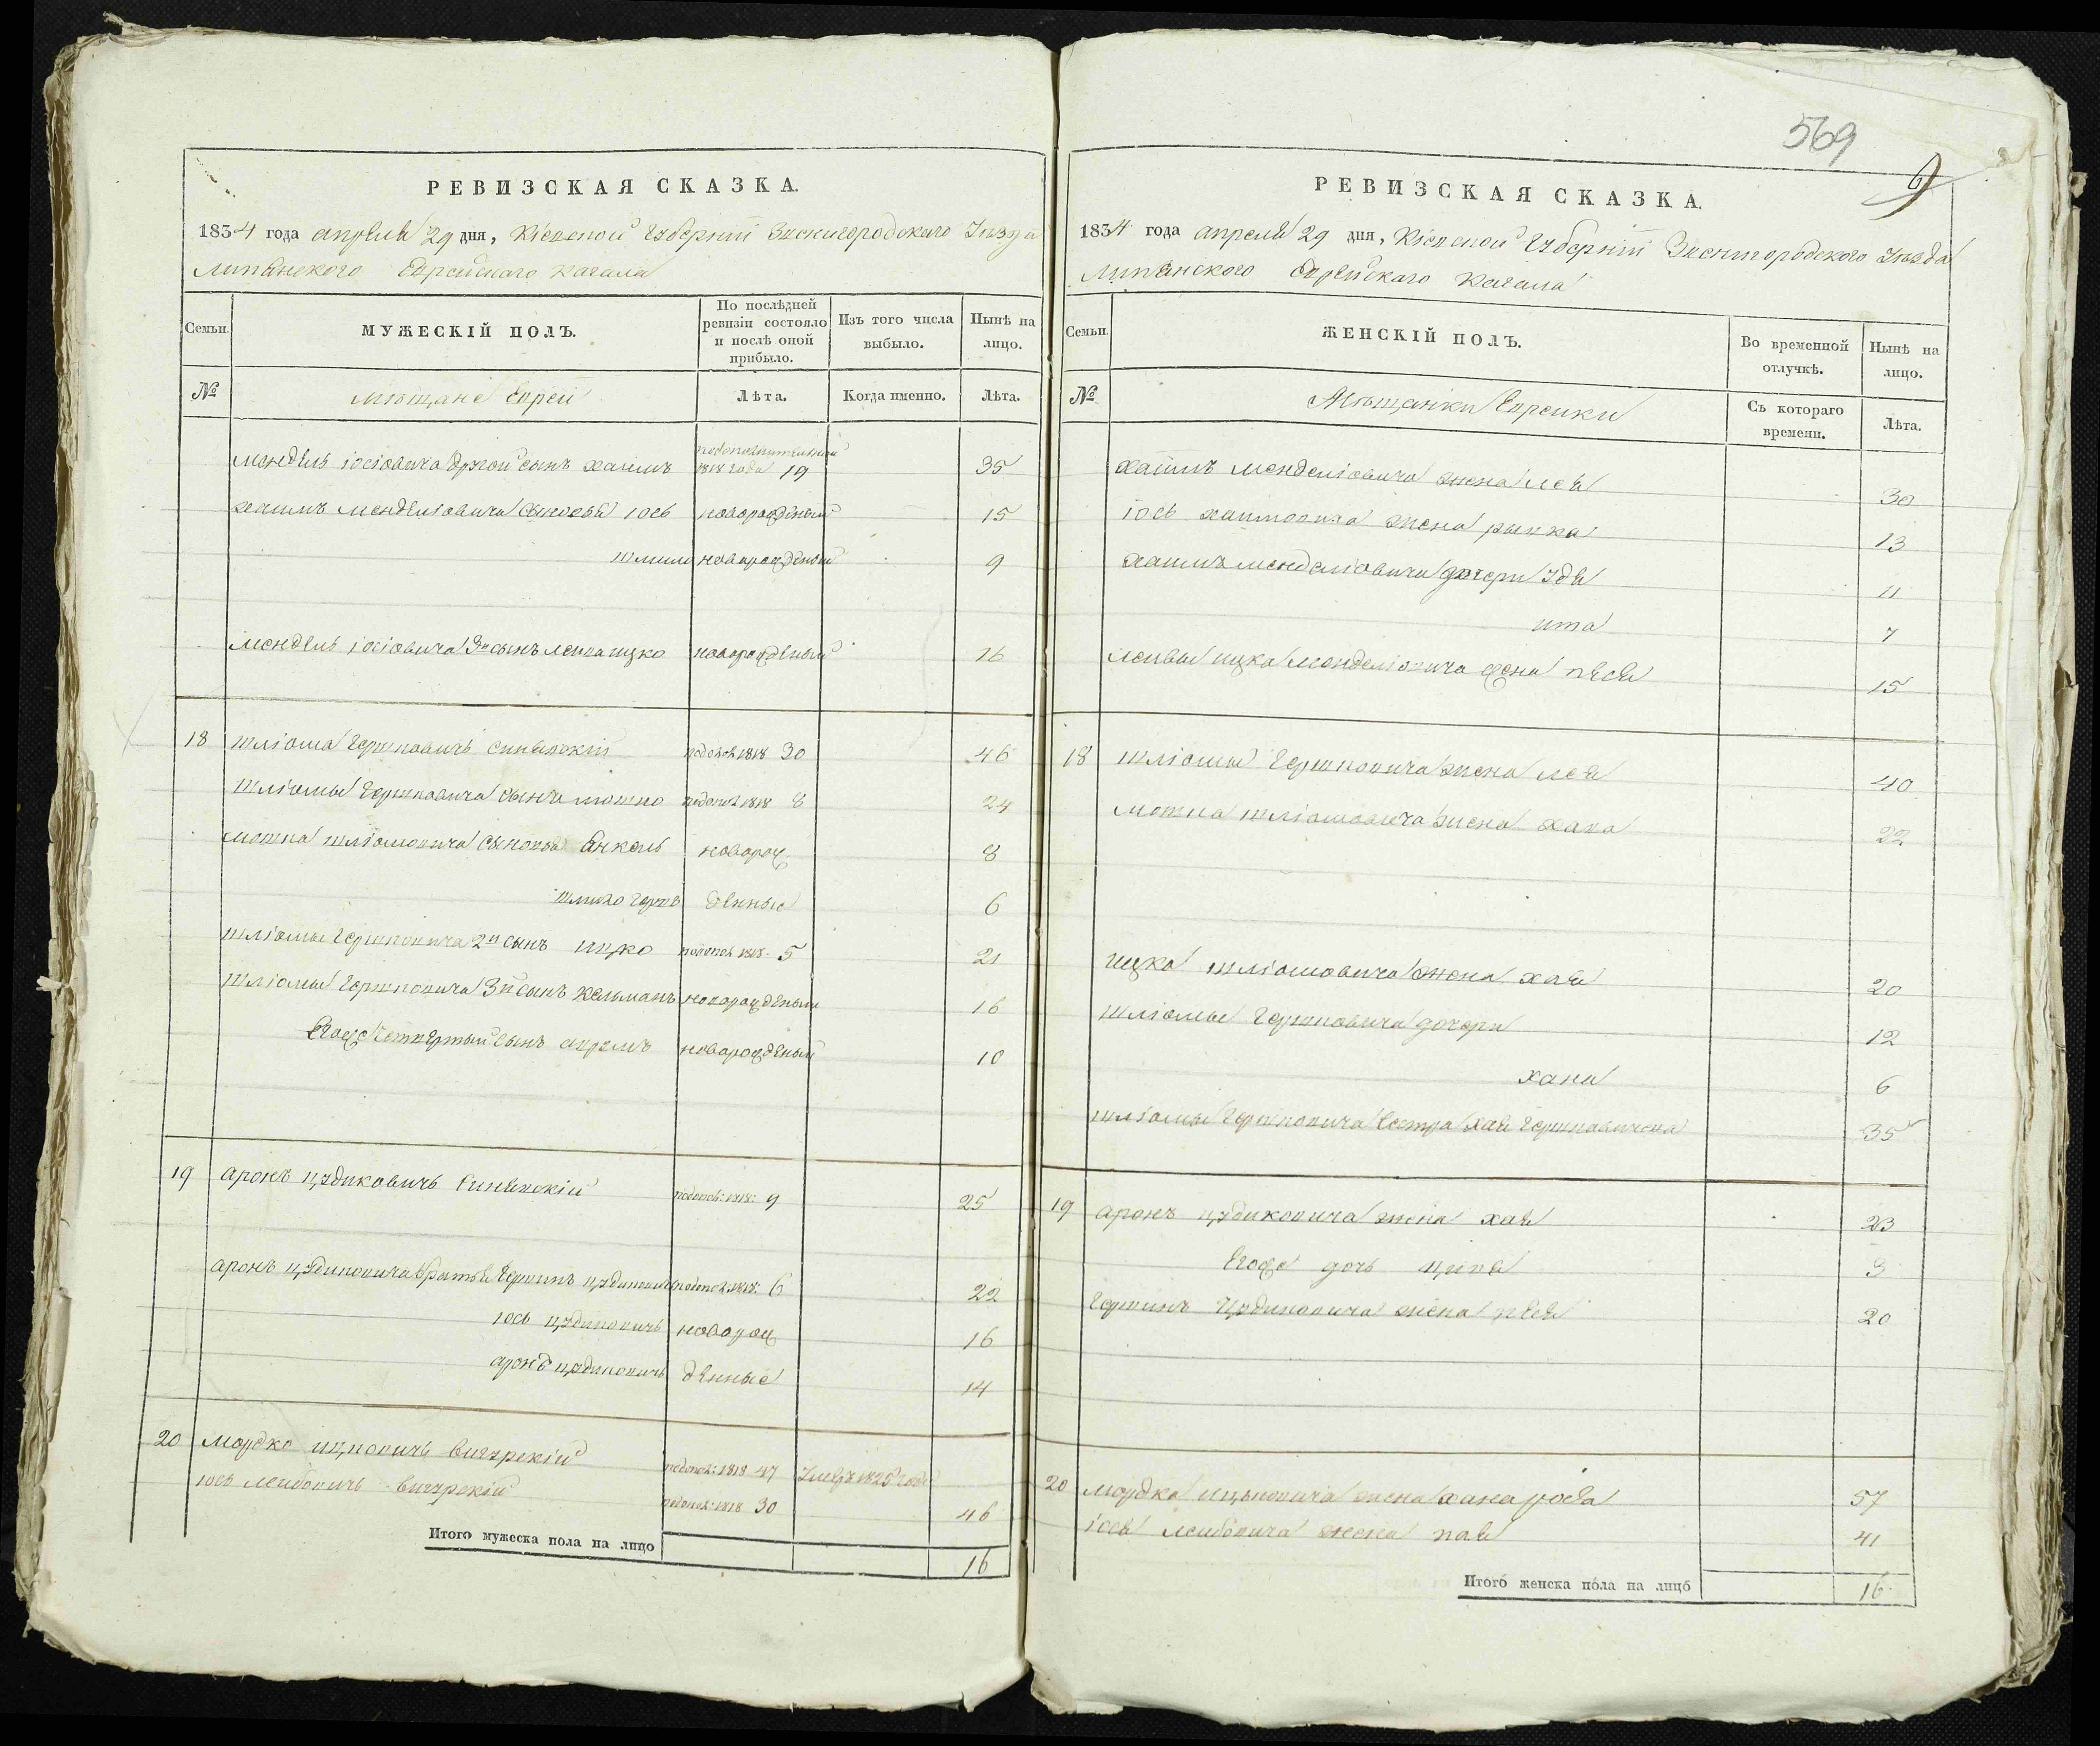 569
6
РЕВИЗСКАЯ СКАЗКА.
1834 года апреля 29 дня, Кіевской Губерніи Звенигородского Уезда
Липянского Еврейскаго Кагала
Семьи.
МУЖЕСКІЙ ПОЛЪ.
По послѣдней ревизіи состояло и послѣ оной прибыло.
Изъ того числа выбыло.
Нынѣ на лицо.
№
Мѣщане Евреи
Лѣта.
Когда именно.
Лѣта.
Мендель Іосіовича другой сынъ Хаимъ 1818 года 19 35
Хаимъ Менделіовича сыновья Іось новорожденый 15
Шмилъ новорожденый 9
Мендель Іосіовича 3й сынъ Лейва Ицко новорожденый 16
18 Шліома Гершковичь Синявскій подопол 1818 30 46
Шліомы Гершковича сынъ Мошко подопол 1818 8 24
Мошка Шліомовича сыновья Янкель новорож 8
Шмило Гершъ денные 6
Шліомы Гершковича 2й сынъ Ицко подопол 1818 5 21
Шліомы Гершковича 3й сынъ Кельманъ новорожденый 16
Егожъ четвертый сынъ Аврамъ новорожденый 10
19 Аронъ Цудиковичь Синявскій подопол: 1818: 9 25
Аронъ Цудиковича братья Гершинъ Цудиковичь подопол 1818: 6 22
Іось Цудиковичь новорож 16
Аронъ Цудиковичь денные 14
20 Мордко Ицковичь подопол: 1818 47 Умеръ 1825 года
Іось Лейбовичь подопол: 1818 30 46
Итого мужеска пола на лицо 16
РЕВИЗСКАЯ СКАЗКА.
1834 года апреля 29 дня, Кіевской Губерніи Звенигородского Уезда
Липянского Еврейскаго Кагала
Семьи.
ЖЕНСКІЙ ПОЛЪ.
Во временной отлучкѣ.
Нынѣ на лицо.
№
Мѣщанки Еврейки
Съ котораго времени.
Лѣта.
Хаимъ Менделіовича жена Лея 30
Іось Хаимовича жена Рывка 13
Хаимъ Менделіовича дочери Удя 11
Ита 7
Лейвы Ицка Менделіовича жена Песя 15
18 Шліомы Гершковича жена Лея 40
Мошка Шліомовича жена Хава 22
Ицка Шліомовича жена Хая 20
Шліомы Гершковича дочери 12
Хана 6
Шліомы Гершковича сестра Хая Гершковичева 35
19 Аронъ Цудиковича жена Хая 23
Егожъ дочь Ципа 3
Гершинъ Цудиковича жена Песя 20
20 Мордка Ицьковича жена Хана Рося 57
Іося Лейбовича жена Пая 41
Итого женска пола на лицо 16